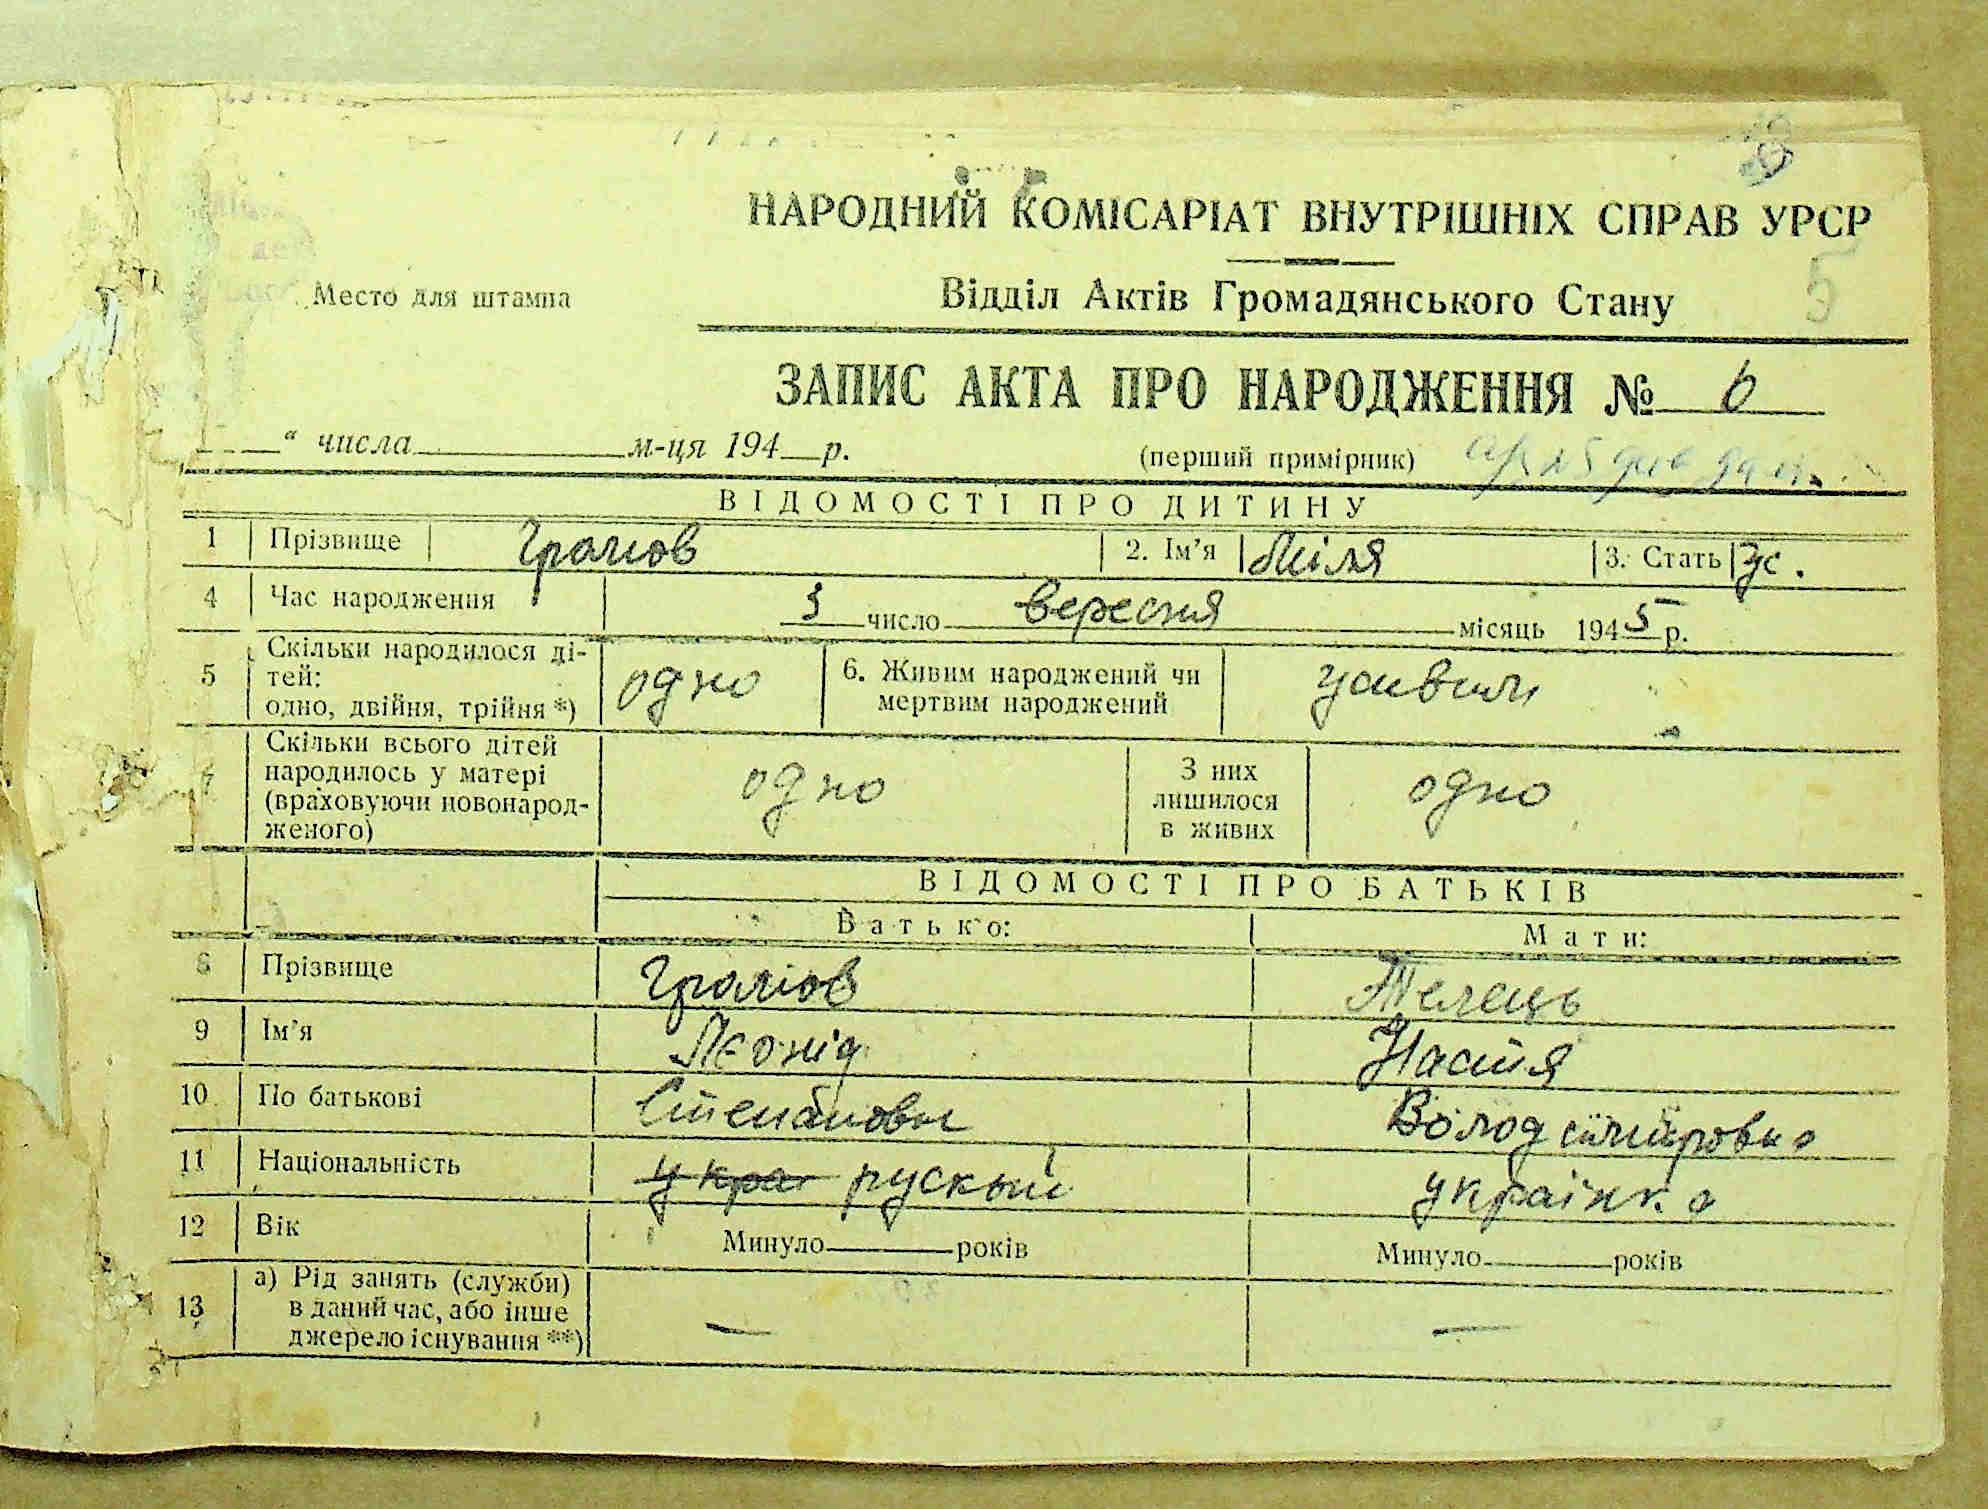 НАРОДНИЙ КОМІСАРІАТ ВНУТРІШНІХ СПРАВ УРСР
Место для штампа
Відділ Актів Громадянського Стану
5
ЗАПИС АКТА ПРО НАРОДЖЕННЯ № 6
" числа м-ця 194 р.
(перший примірник)
ВІДОМОСТІ ПРО ДИТИНУ
1 Прізвище 2. Ім'я Міля 3. Стать ж.
4 Час народження 3 число вересня місяць 1945 р.
5 Скільки народилося ді-
тей:
одно, двійня, трійня *)
одно
6. Живим народжений чи
мертвим народжений
живим
7 Скільки всього дітей
народилось у матері
(враховуючи новонарод-
женого)
одно
З них
лишилося
в живих
одно
ВІДОМОСТІ ПРО БАТЬКІВ
Батько: Мати:
8 Прізвище Телець
9 Ім'я Лєонід Настя
10 По батькові Володимировна
11 Національність укра руский українка
12 Вік Минуло років Минуло років
13 а) Рід занять (служби)
в даний час, або інше
джерело існування **)
— —